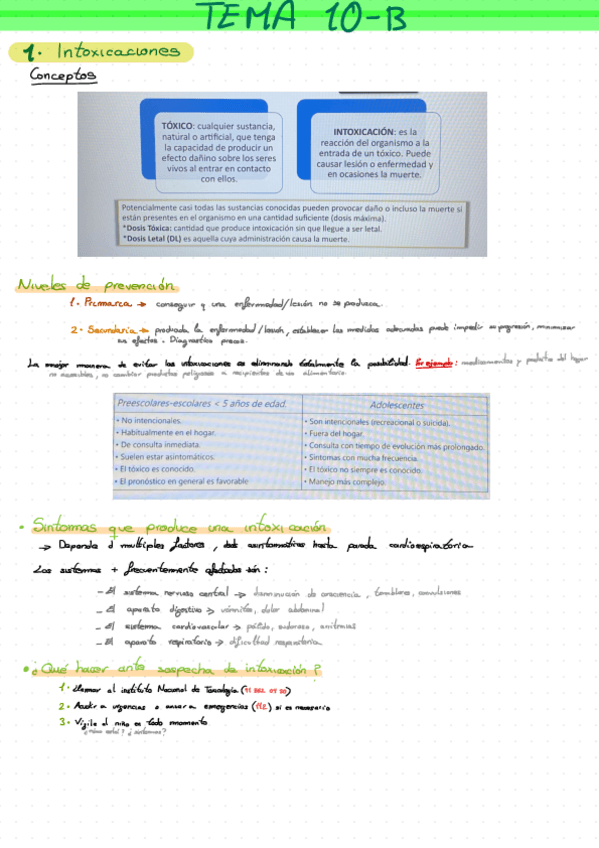 TEMA 10-B
1. Intoxicaciones
Conceptos
TÓXICO: cualquier sustancia,
natural o artificial, que tenga
la capacidad de producir un
efecto dañino sobre los seres
vivos al entrar en contacto
con ellos.
INTOXICACIÓN: es la
reacción del organismo a la
entrada de un tóxico. Puede
causar lesión o enfermedad y
en ocasiones la muerte.
Potencialmente casi todas las sustancias conocidas pueden provocar daño o incluso la muerte si
están presentes en el organismo en una cantidad suficiente (dosis máxima).
*Dosis Tóxica: cantidad que produce intoxicación sin que llegue a ser letal.
*Dosis Letal (DL) es aquella cuya administración causa la muerte.
Niveles de prevención
1. Primaria → conseguir q una enfermedad/lesión no se produzca.
2. Secundaria → producida la enfermedad/lesión, establecer las medidas adecuadas puede impedir su progresión, minimizar
sus efectos. Diagnostico precoz.
La mejor manera de evitar las intoxicaciones es eliminando totalmente la posibilidad. Por ejemplo: medicamentos y productos del hogar
no accesibles, no cambiar productos peligrosos a recipientes de uso alimentario.
Preescolares-escolares < 5 años de edad.
• No intencionales.
• Habitualmente en el hogar.
• De consulta inmediata.
• Suelen estar asintomáticos.
• El tóxico es conocido.
• El pronóstico en general es favorable
Adolescentes
• Son intencionales (recreacional o suicida).
• Fuera del hogar.
• Consulta con tiempo de evolución más prolongado.
• Síntomas con mucha frecuencia.
• El tóxico no siempre es conocido.
• Manejo más complejo.
• Sintomas que produce una intoxicación
→ Depende d multiples factores, dsd asintomáticos hasta parada cardiorespiratoria
Los sistemas + frecuentemente afectados son:
- El sistema nervioso central → disminución de consciencia, temblores, convulsiones
- El aparato digestivo → vómitos, dolor abdominal
- El sistema cardiovascular → pálido, sudoroso, arritmias
- El aparato respiratorio → dificultad respiratoria.
• ¿Qué hacer ante sospecha de intoxicación?
1. Llamar al instituto Nacional de Toxicología (91 562 04 20)
2. Acudir a urgencias o avisar a emergencias (112) si es necesario
3. Vigile al niño en todo momento